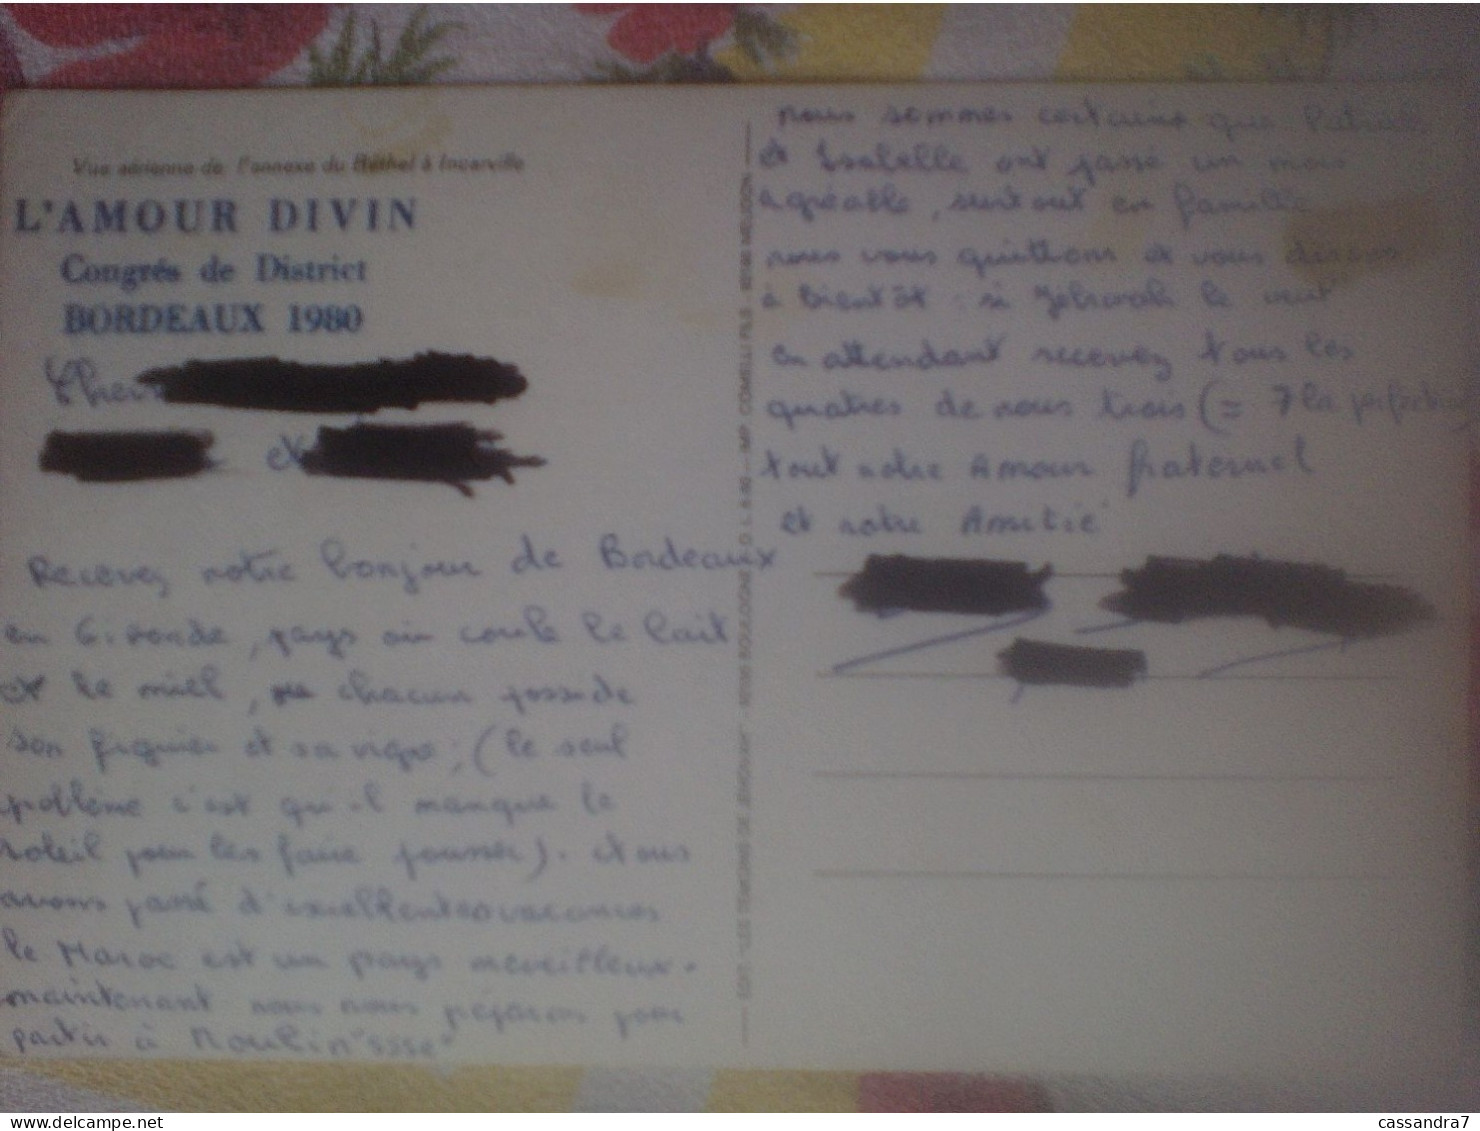 Vue aérienne de l'annexe du Béthel à Incarville
L'AMOUR DIVIN
Congrés de District
BORDEAUX 1980
Chers
et
Recevez notre bonjour de Bordeaux
en Gironde, pays où coule le lait
et le miel, où chacun possède
son figuier et sa vigne; (le seul
problème c'est qu'il manque le
soleil pour les faire pousser). Nous
avons passé d'excellentes vacances
le Maroc est un pays merveilleux.
maintenant nous nous préparons pour
partir à Moulin "sse"
nous sommes certains que
et Isabelle ont passé un mois
agréable, surtout en famille
nous vous quittons et vous disons
à bientôt : si Jéhovah le veut
en attendant recevez tous les
quatres de nous trois (= 7 la perfection)
tout notre Amour fraternel
et notre Amitié
EDIT. "LES TEMOINS DE JEHOVAH" - 92100 BOULOGNE - IMP. COMELLI FILS - MEUDON
delcampe.net
cassandra7